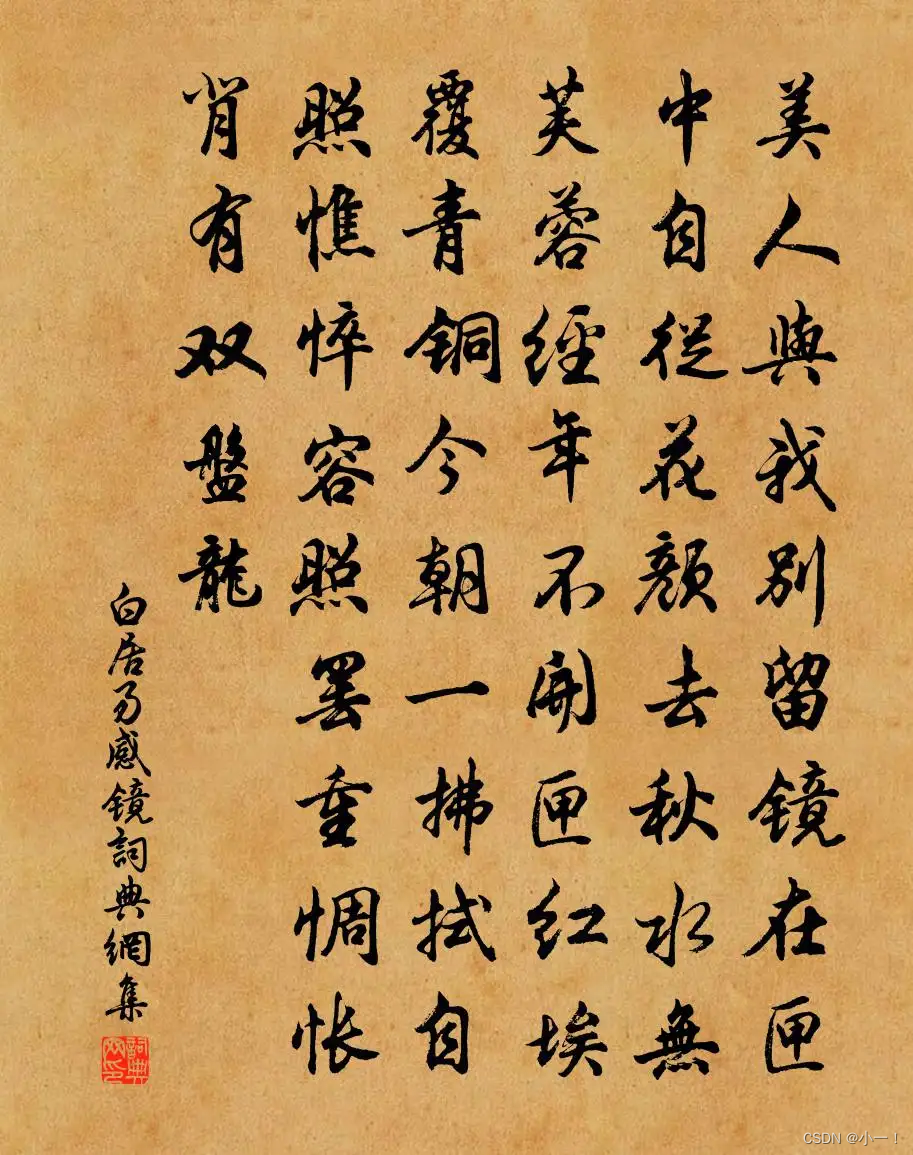 美人與我别留镜在匣
中自從花顔去秋水無
芙蓉經年不開匣红埃
覆青铜今朝一拂拭自
照憔悴容照罢重惆怅
背有双盤龍
白居易感鏡詞典網集
詞典网印
CSDN @小一！